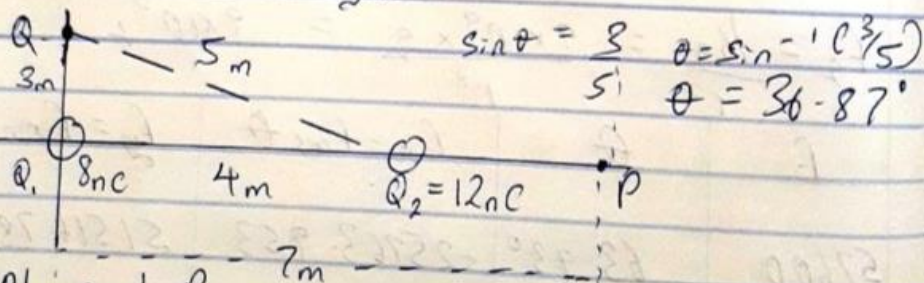 Q
5m
sinθ = 3/5 θ = sin⁻¹(3/5)
3m
θ = 36.87°
Q₁ 8nC 4m Q₂ = 12nC P
7m